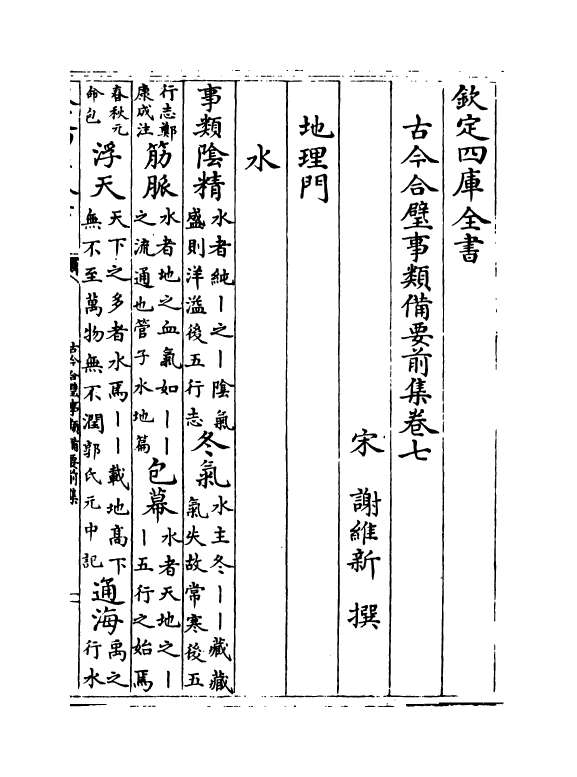 欽定四庫全書
古今合璧事類備要前集卷七
宋 謝維新 撰
地理門
水
事類陰精水者純丨之丨陰氣盛則洋溢後五行志冬氣水主冬丨丨藏藏氣失故常寒後五
行志鄭康成注筋脈水者地之血氣如丨丨之流通也管子水地篇包幕水者天地之丨丨五行之始焉
春秋元命包浮天天下之多者水焉丨丨載地高下無不至萬物無不潤郭氏元中記通海禹之行水
古今合璧事類備要前集